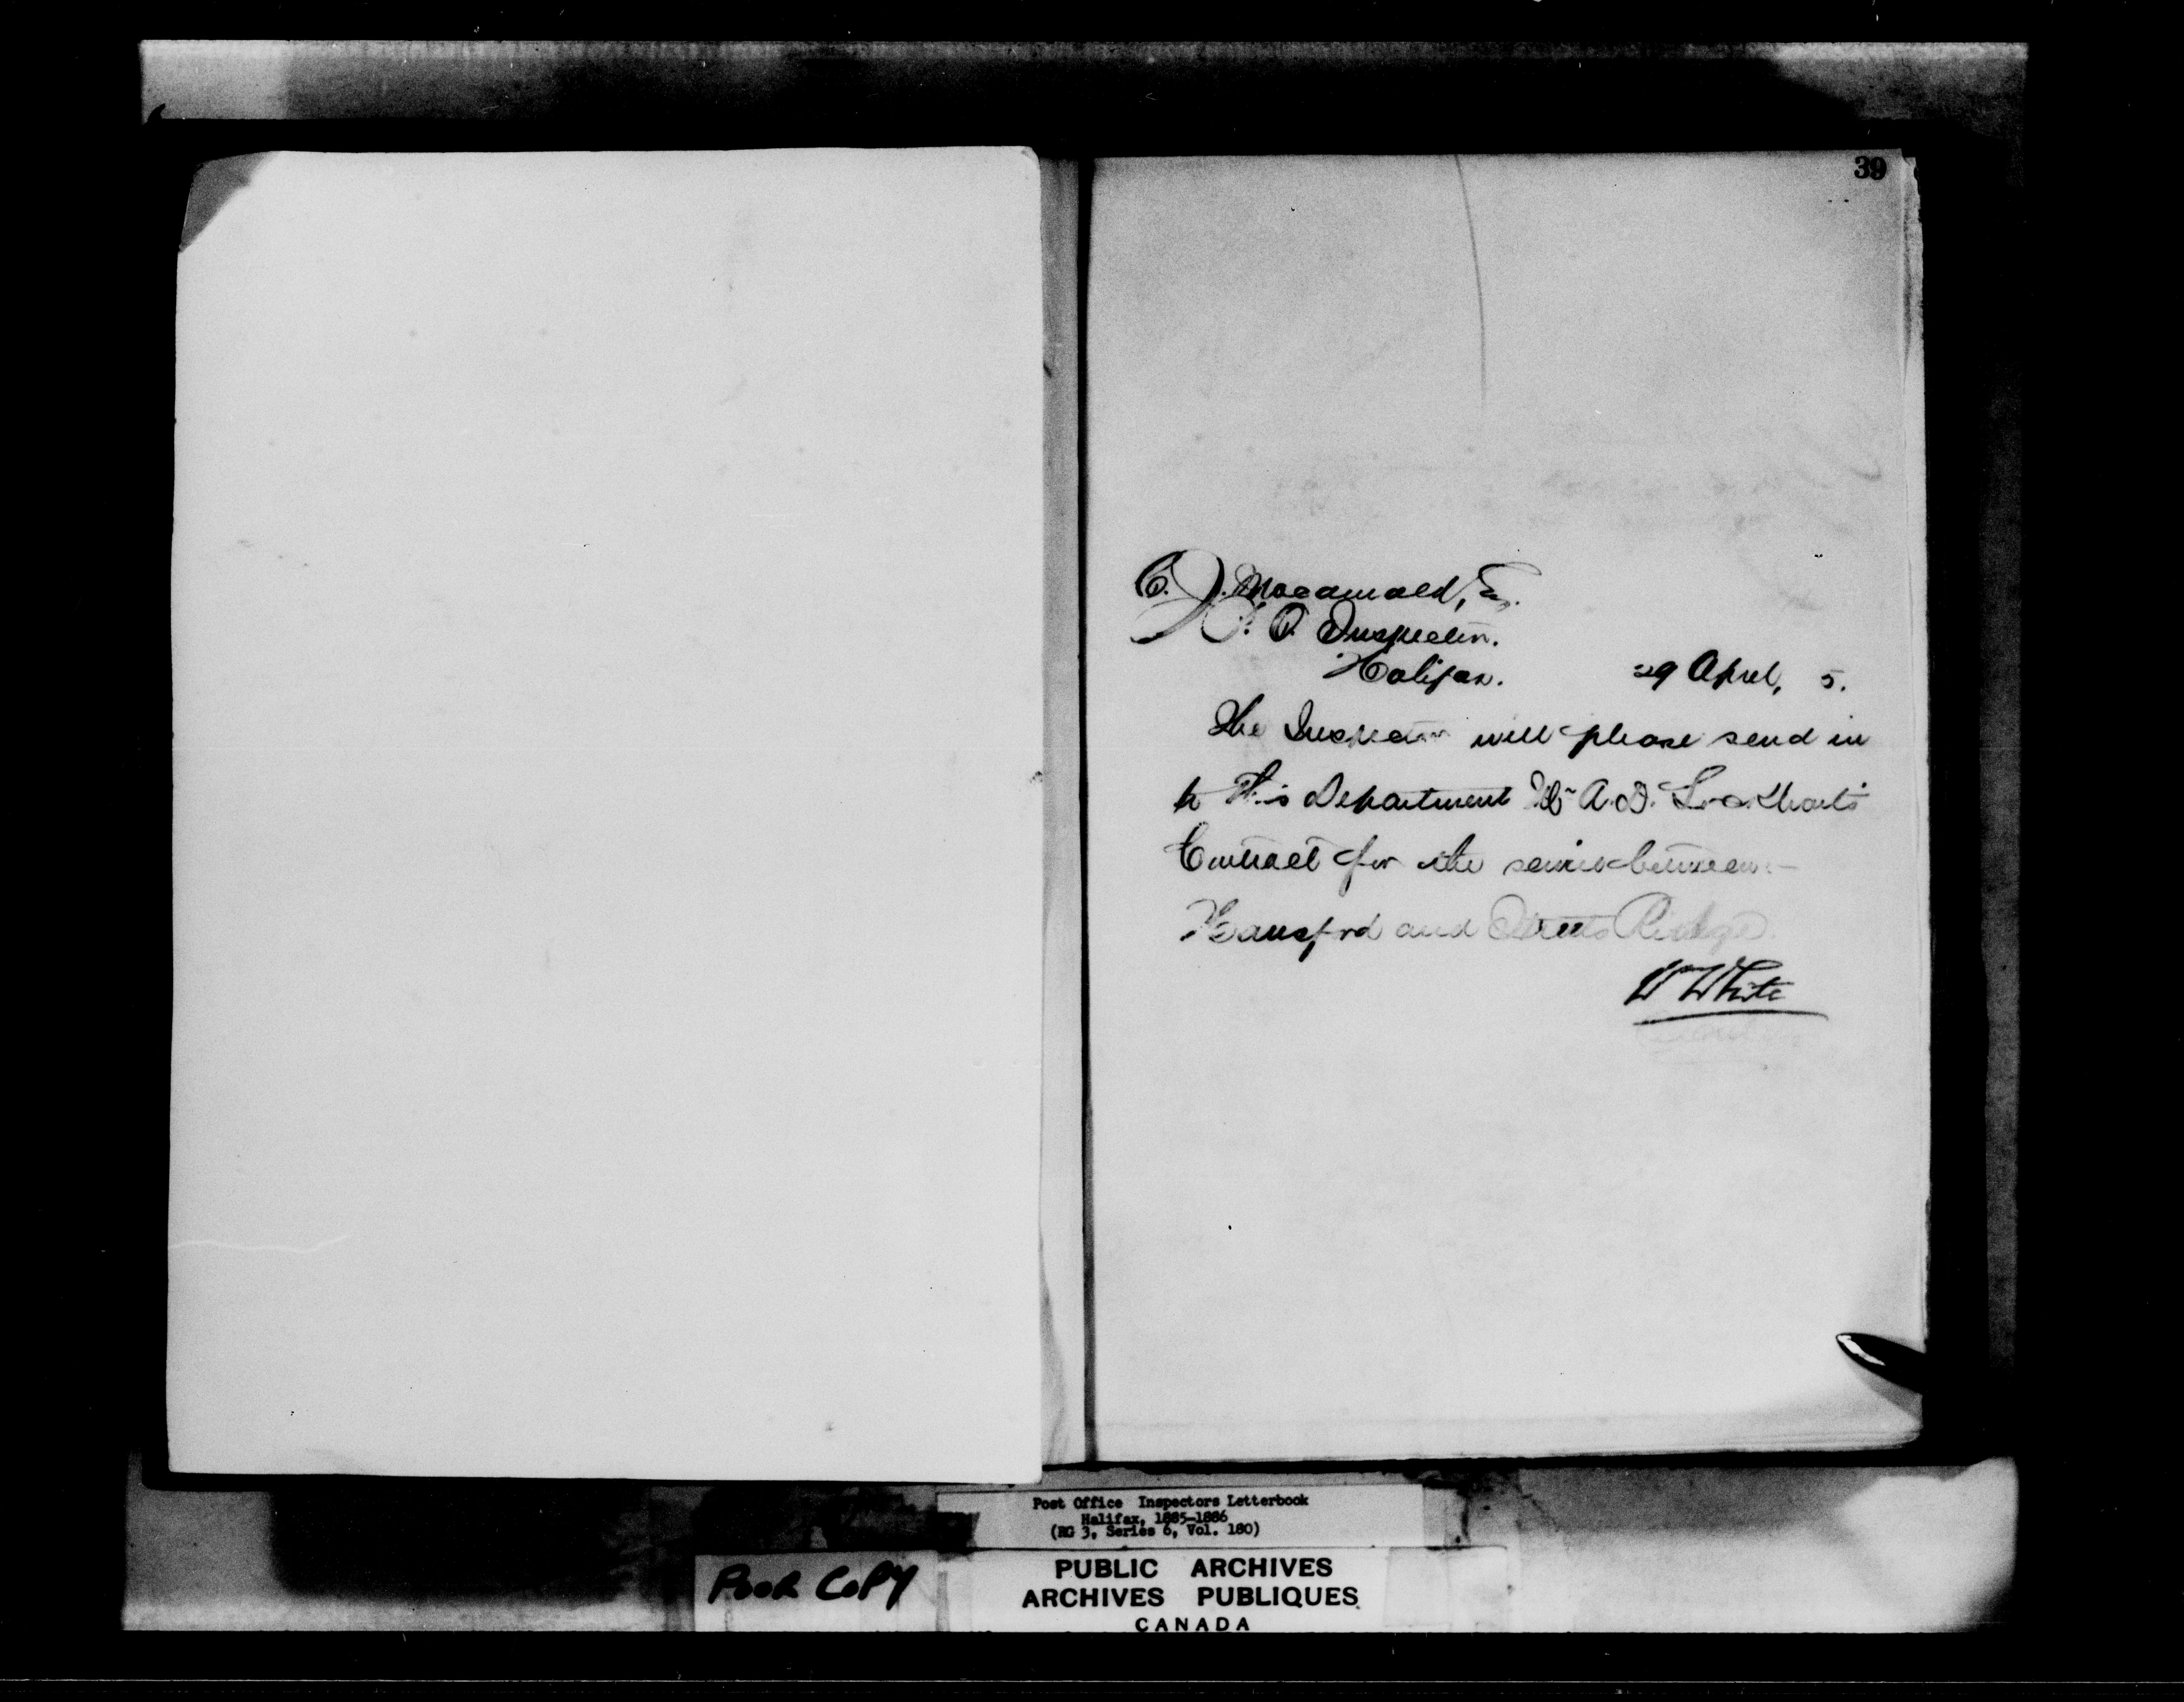 39
C. J. Macdonald, Esq.
P. O. Inspector.
Halifax. 29 April, 5.
The Inspector will please send in
to this Department Mr A. D. Lockhart's
Contract for the service between
Hansford and Streets Ridge.
W White
Post Office Inspectors Letterbook
Halifax, 1885-1886
(RG 3, Series 6, Vol. 180)
POOR COPY
PUBLIC ARCHIVES
ARCHIVES PUBLIQUES
CANADA